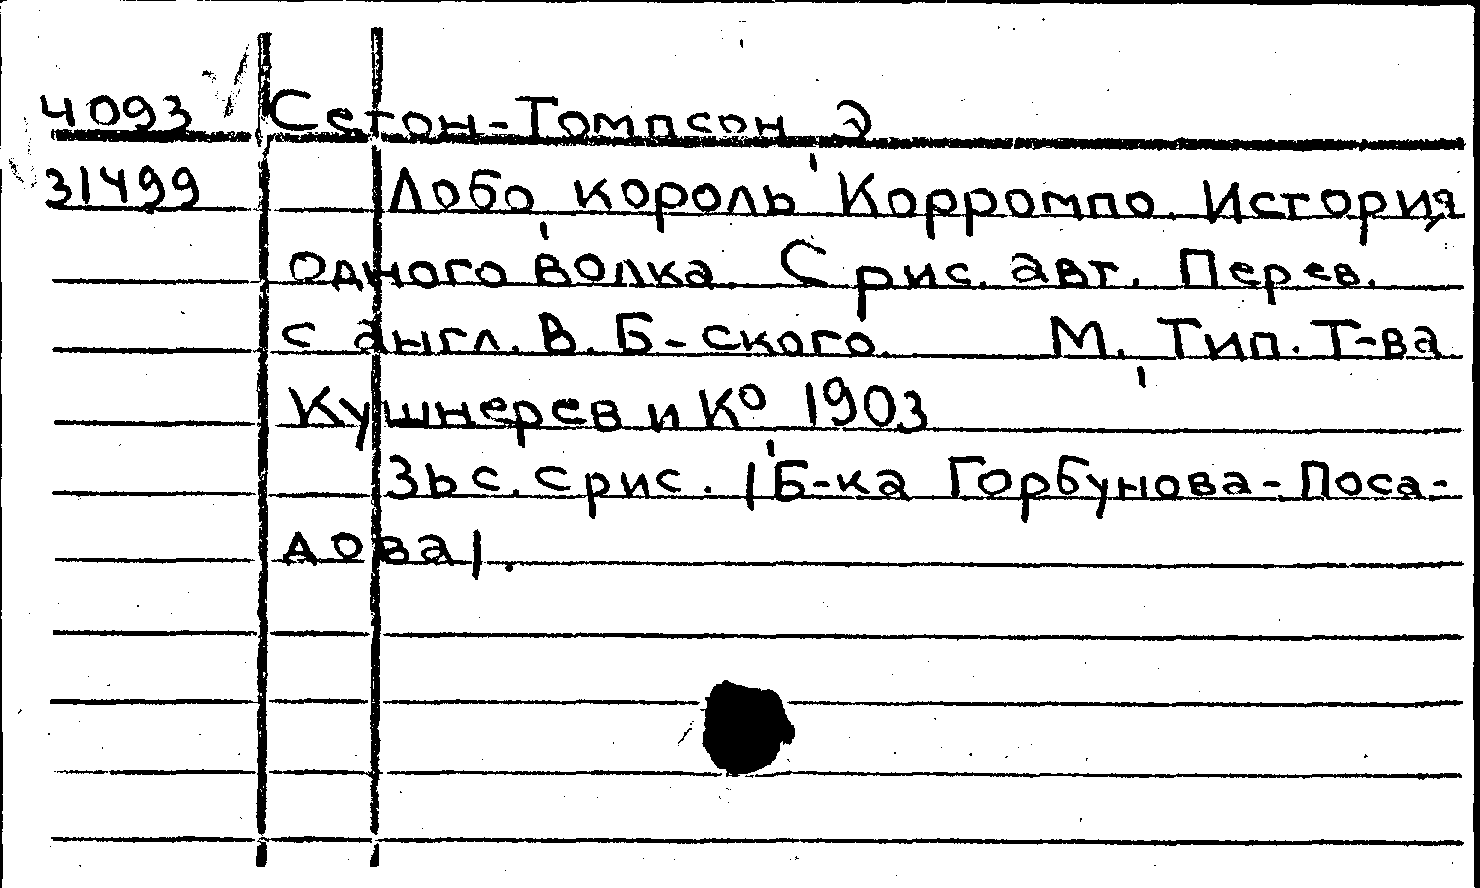 4093 Сетон-Томпсон, Э
31499 Лобо, король Корромпо. История
одного волка. С рис. авт. Перев.
с англ. В. Б-ского. М., Тип. Т-ва
Кушнерев и К⁰, 1903
36 с. с рис. /Б-ка Горбунова-Поса-
дова/.